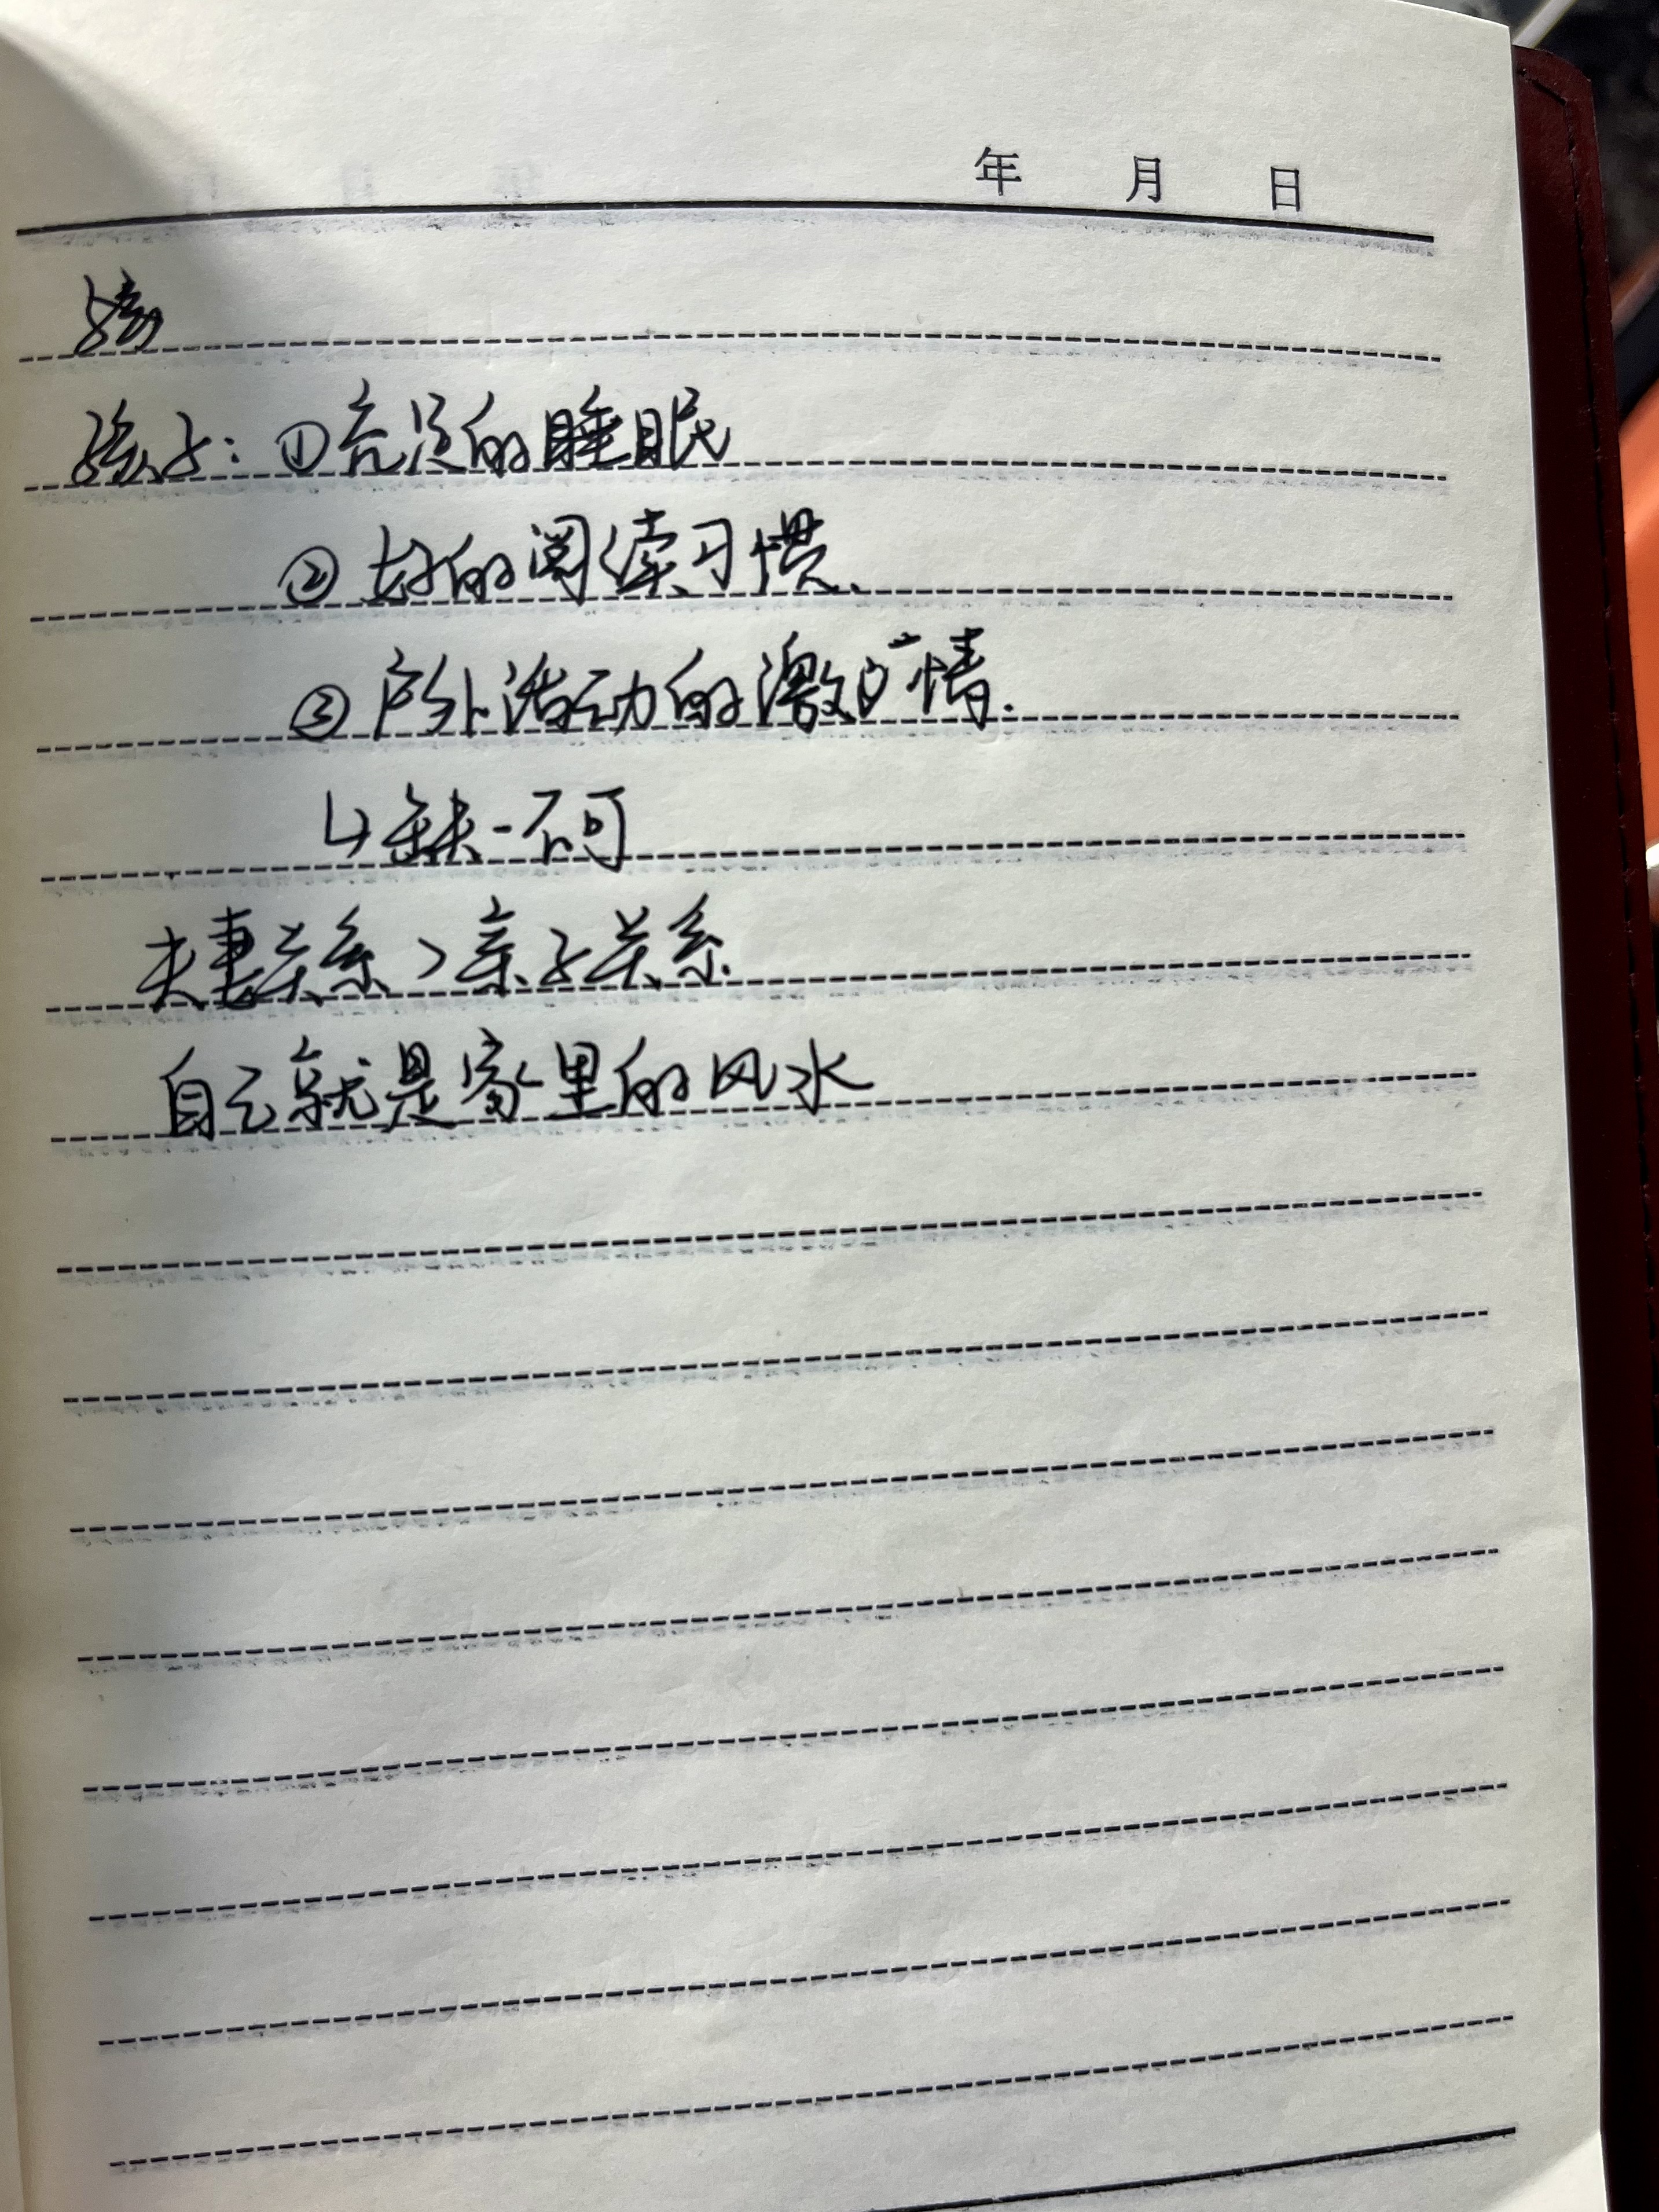 年 月 日
孩子：①充足的睡眠
②好的阅读习惯、
③户外活动的激情.
↳缺一不可
夫妻关系>亲子关系
自己就是家里的风水